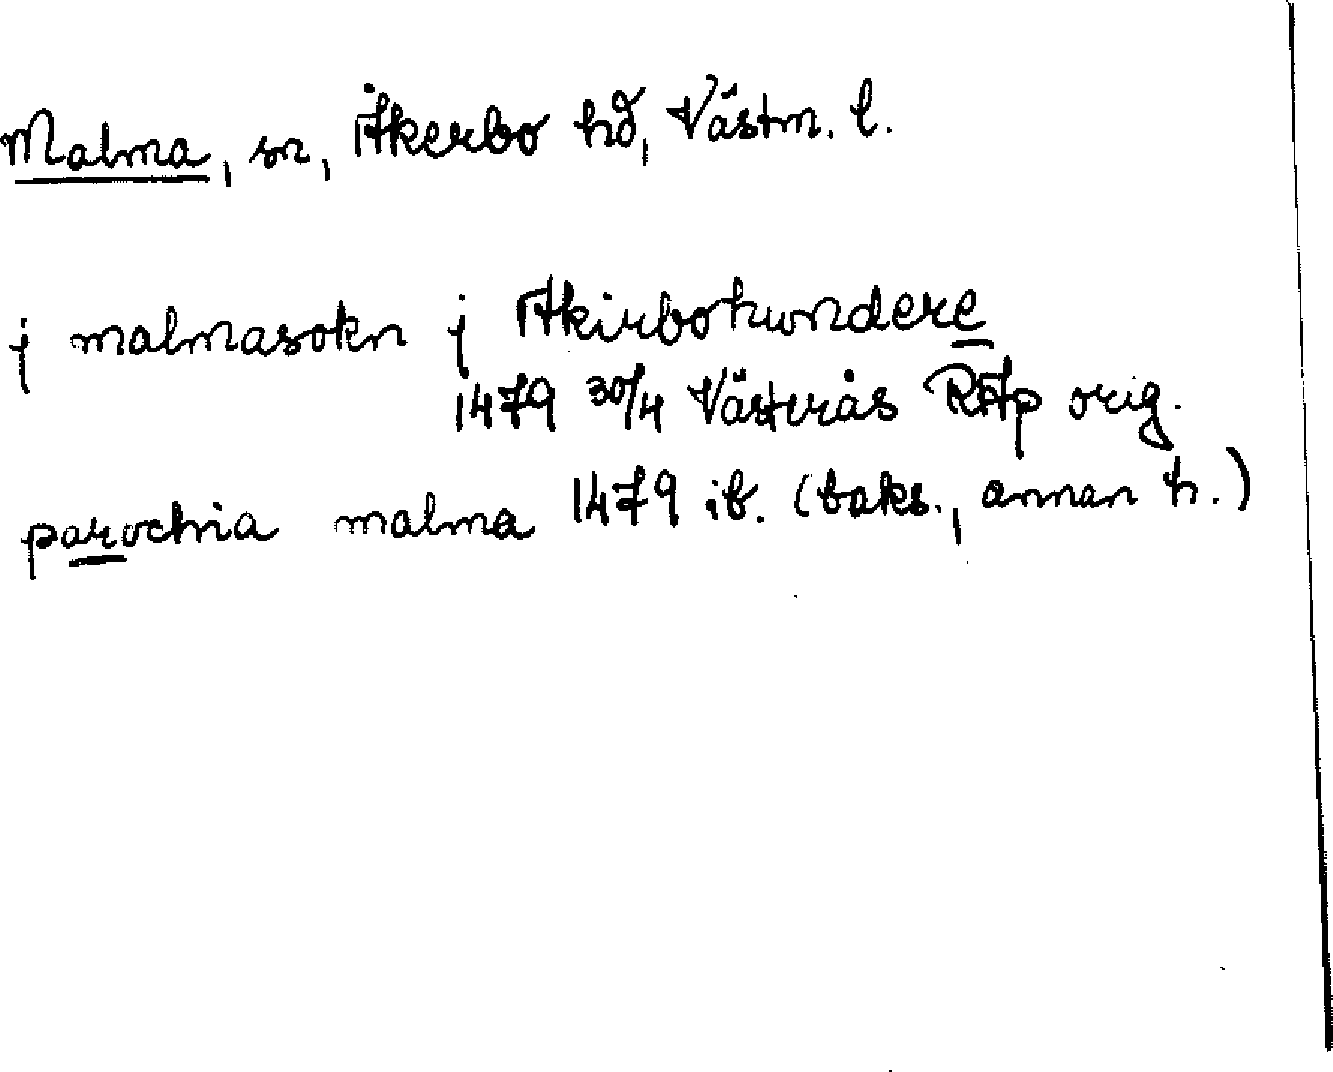 Malma, sn, Åkerbo hd, Västm. l.
j malmasokn j Akirbohundere
1479 30/4 Västerås RAp orig.
parochia malma 1479 ib. (baks., annan h.)